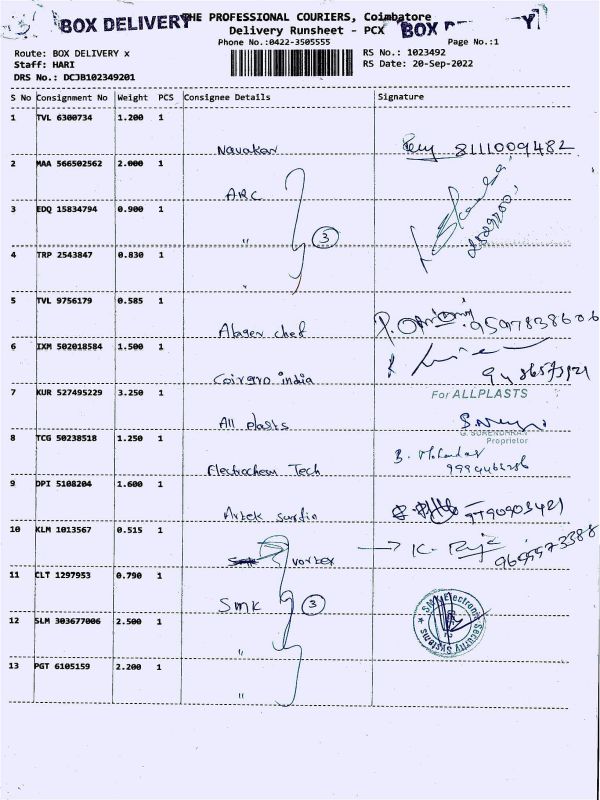 BOX DELIVERY THE PROFESSIONAL COURIERS, Coimbatore
Delivery Runsheet - PCX BOX
Phone No.:0422-3505555 Page No.:1
Route: BOX DELIVERY x RS No.: 1023492
Staff: HARI RS Date: 20-Sep-2022
DRS No.: DCJB102349201
S No Consignment No Weight PCS Consignee Details Signature
1 TVL 6300734 1.200 1
Navakar 8111009482
2 MAA 566502562 2.000 1
ARC
3 EDQ 15834794 0.900 1
" 3
4 TRP 2543847 0.830 1
"
5 TVL 9756179 0.585 1
chef 9597838606
6 IXM 502018584 1.500 1
india
7 KUR 527495229 3.250 1 For ALLPLASTS
All plasts
G. SURENDHRAN
Proprietor
8 TCG 50238518 1.250 1
Tech
9 DPI 5108204 1.600 1
9790903421
10 KLM 1013567 0.515 1
vortex K. Raja
11 CLT 1297953 0.790 1
SMK 3
12 SLM 303677006 2.500 1
SMK Electronic Security Systems
"
13 PGT 6105159 2.200 1
"